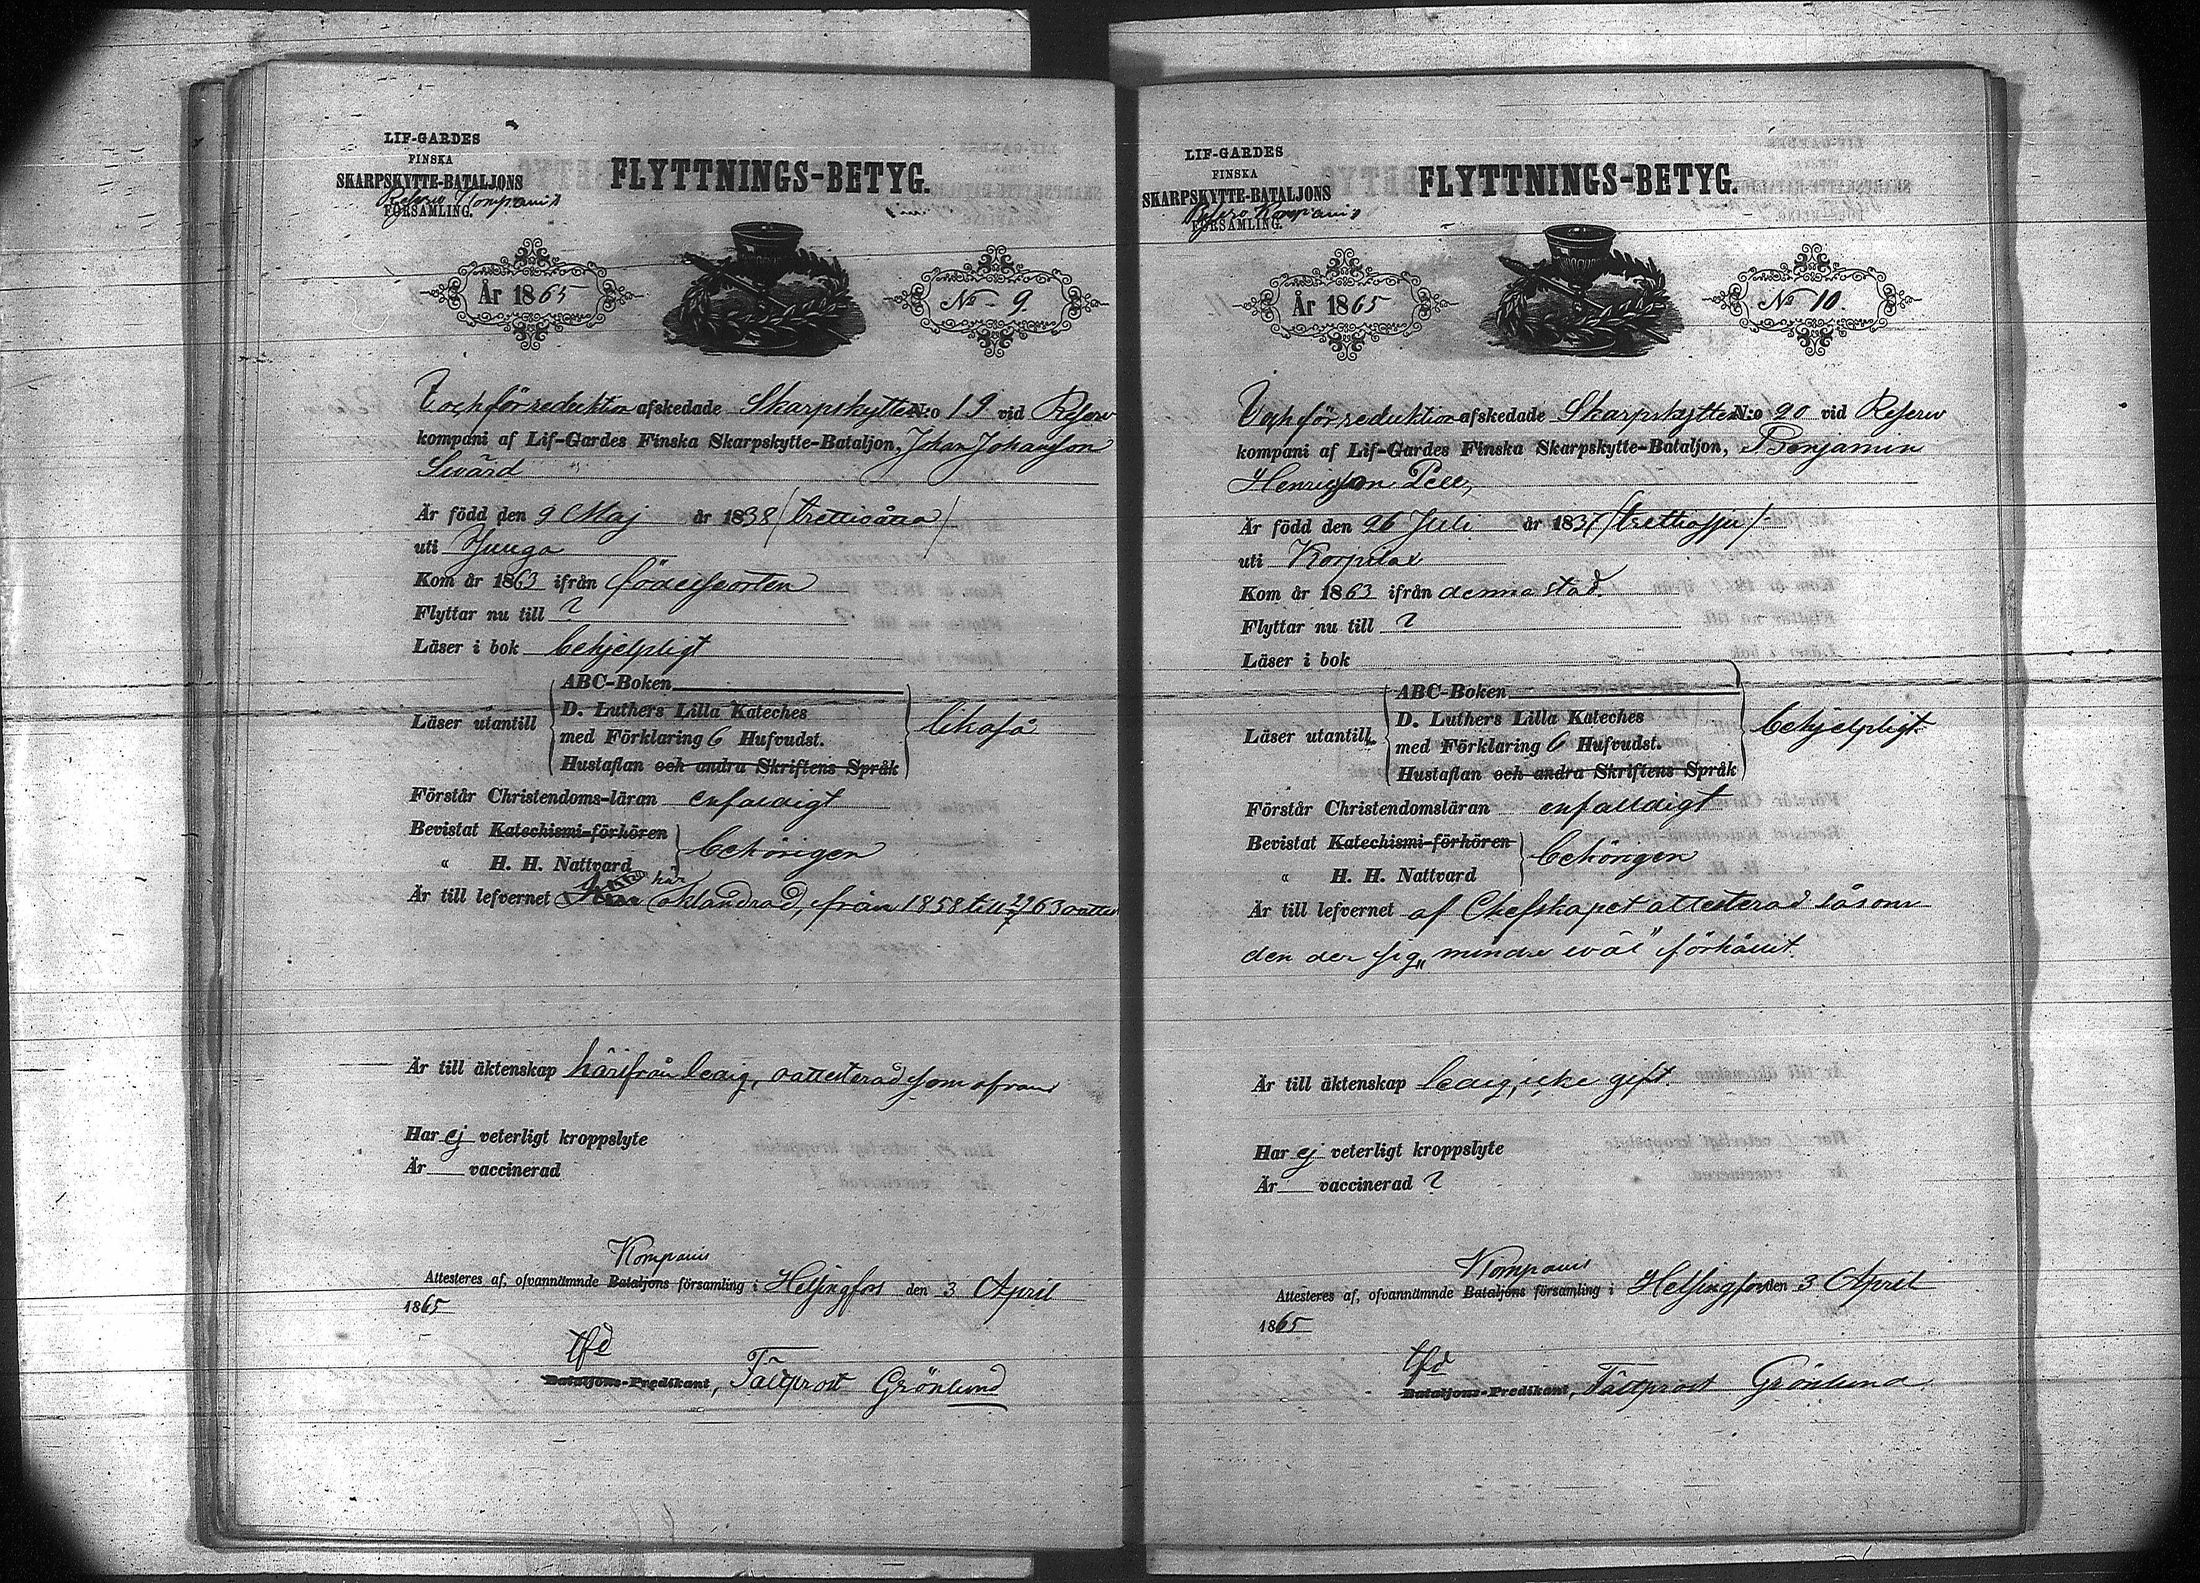 LIF-GARDES
FINSKA
SKARPSKYTTE-BATALJONS
Reserv Kompanis
FÖRSAMLING.
FLYTTNINGS-BETYG.
År 1865
No 9.
V och för reduktion afskedade Skarpskytte N:o 19 vid Reserv
kompani af Lif-Gardes Finska Skarpskytte-Bataljon, Johan Johansson
Svärd
Är född den 9 Maj år 1838 / trettioåtta /
uti Juuga
Kom år 1863 ifrån födelseorten
Flyttar nu till ?
Läser i bok behjelpligt
ABC-Boken
Läser utantill D. Luthers Lilla Kateches
med Förklaring 6 Hufvudst.
Hustaflan och andra Skriftens Språk
likaså
Förstår Christendoms-läran enfaldigt
Bevistat Katechismi-förhören
" H. H. Nattvard
behörigen
Är till lefvernet här oklandrad, från 1858 till 29/7 63
Är till äktenskap härifrån ledig, oattesterad som ofvan
Har ej veterligt kroppslyte
Är vaccinerad
Kompanis
Attesteres af, ofvannämnde Bataljons församling i Helsingfors den 3 April
1865
tfd
Bataljons-Predikant, Fältprost Grönlund
LIF-GARDES
FINSKA
SKARPSKYTTE-BATALJONS
Reserv Kompanis
FÖRSAMLING.
FLYTTNINGS-BETYG.
År 1865
No 10.
V och för reduktion afskedade Skarpskytte N:o 20 vid Reserv
kompani af Lif-Gardes Finska Skarpskytte-Bataljon, Benjamin
Henricsson Pell,
Är född den 26 Juli år 1837 / trettiosju /
uti Korpilax
Kom år 1863 ifrån denna stad.
Flyttar nu till ?
Läser i bok
ABC-Boken
Läser utantill D. Luthers Lilla Kateches
med Förklaring 6 Hufvudst.
Hustaflan och andra Skriftens Språk
behjelpligt
Förstår Christendomsläran enfalldigt
Bevistat Katechismi-förhören
" H. H. Nattvard
behörigen
Är till lefvernet af Chefskapet attesterad såsom
den der sig „mindre wäl" förhållit.
Är till äktenskap ledig, icke gift.
Har ej veterligt kroppslyte
Är vaccinerad ?
Kompanis
Attesteres af, ofvannämnde Bataljons församling i Helsingfors den 3 April
1865
tfd
Bataljons-Predikant, Fältprost Grönlund